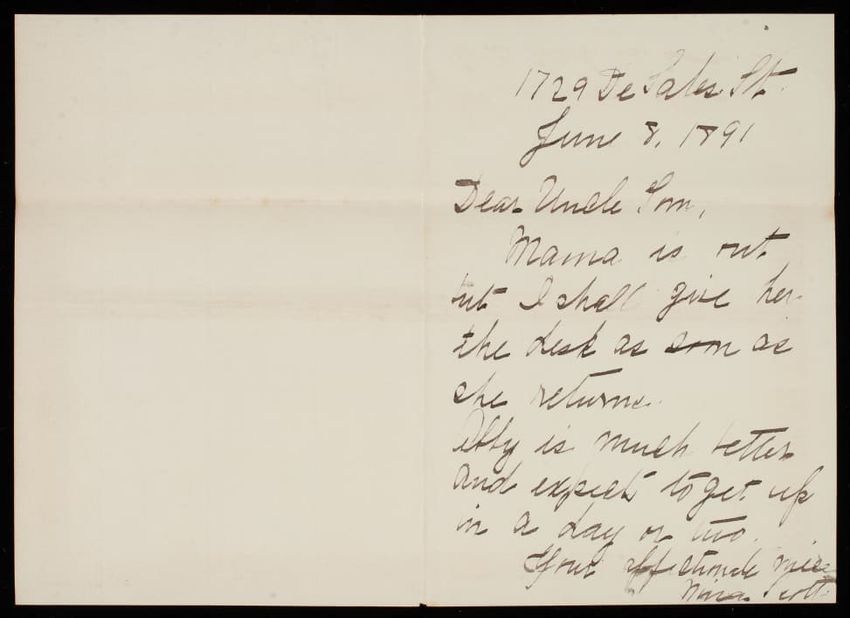 1729 De Sales St.
June 8, 1891
Dear Uncle Tom,
Mama is out
but I shall give her
the desk as soon as
she returns.
Abby is much better
and expects to get up
in a day or two.
Your affectionate niece